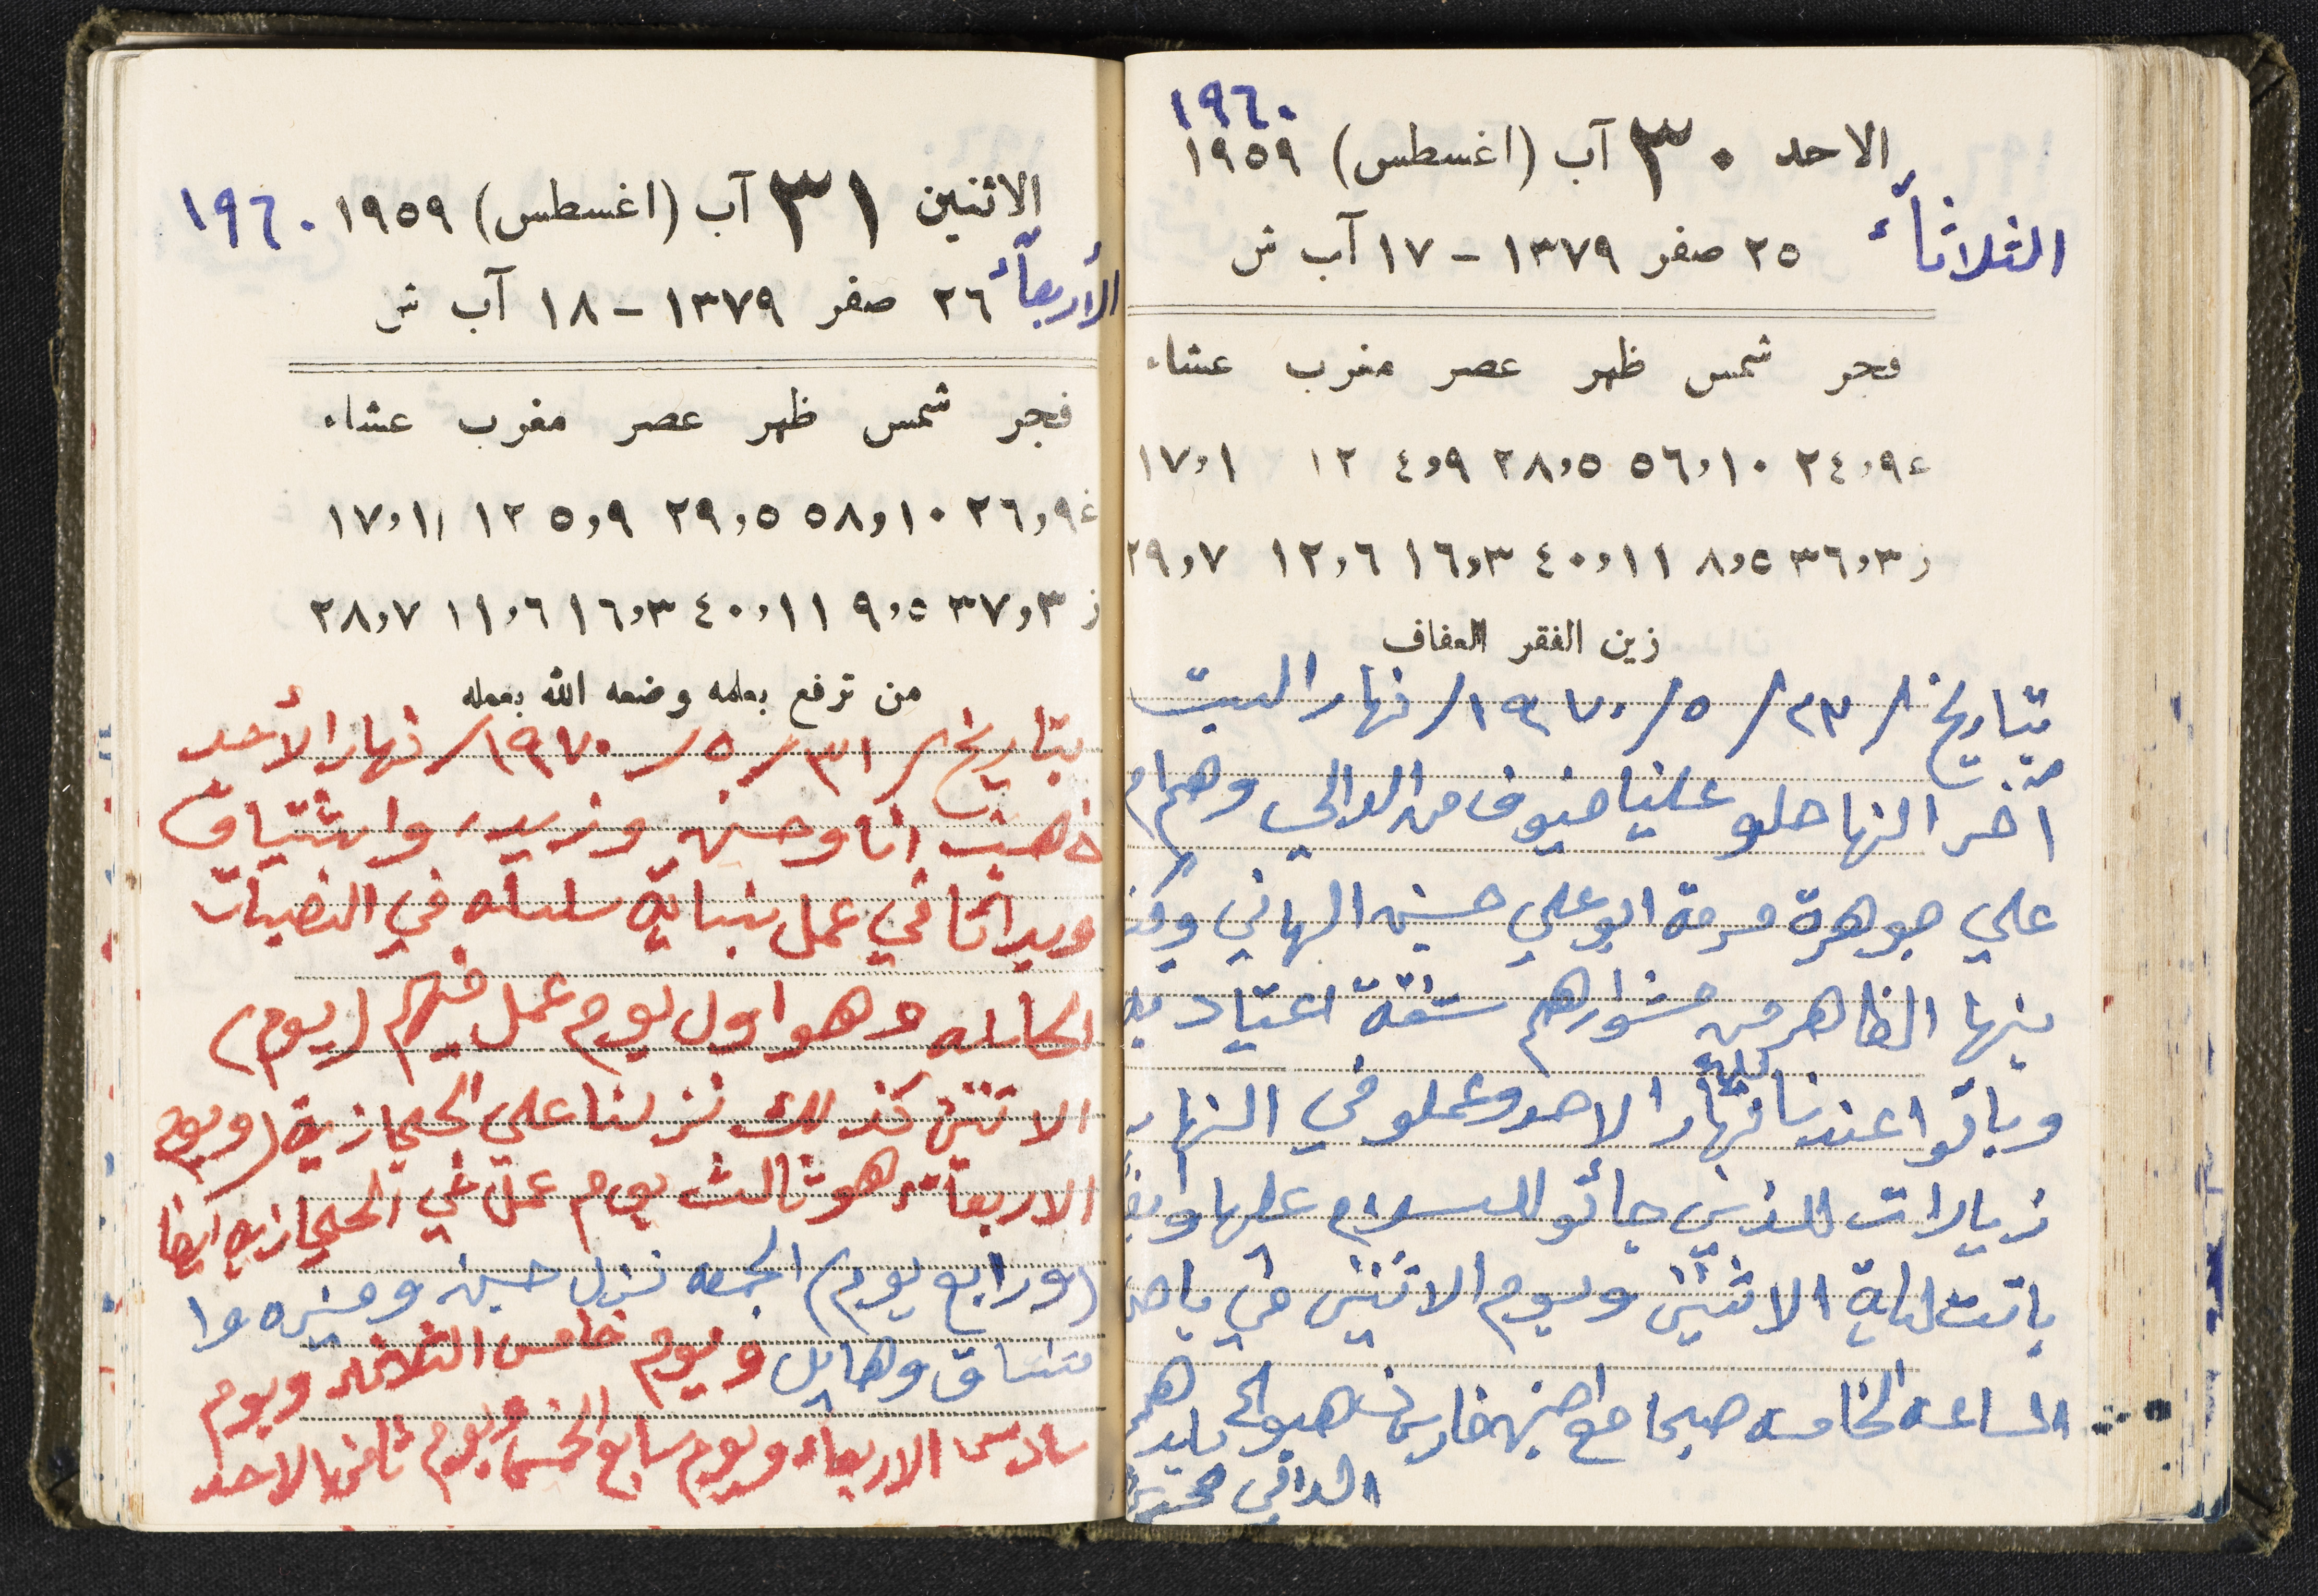 ١٩٦٠
الاحد ٣٠ آب (اغسطس) ١٩٥٩
الثلاثاء
٢٥ صفر ١٣٧٩ - ١٧ آب ش
فجر شمس ظهر عصر مغرب عشاء
ع ٢٤,٩ ٥٦,١٠ ٢٨,٥ ٤,٩ ١٢ ١٧,١
ز ٣٦,٣ ٨,٥ ٤٠,١١ ١٦,٣ ١٢,٦ ٢٩,٧
زين الفقر العفاف
بتاريخ / ٢٣ / ٥ / ١٩٧٠ / نهار السبت
آخر النها حلو علينا ضيوف من الدالي وهم ام
علي جوهرة حرمة ابو علي حسين الهاني
بنها الظاهر من مشوارهم شقة اعتياد
وباتوا عندنا نهار الاحد وعملو في النهار
زيارات للذين جائو للسلام عليها
باتت ليلة الاثنين ويوم الاثنين في باص
الساعه الخامسه صباحا مع
الاثنين ٣١ آب (اغسطس) ١٩٥٩ ١٩٦٠
الأربعاء ٢٦ صفر ١٣٧٩ - ١٨ آب ش
فجر شمس ظهر عصر مغرب عشاء
ع ٢٦,٩ ٥٨,١٠ ٢٩,٥ ٥,٩ ١٢ ١٧,١
ز ٣٧,٣ ٩,٥ ٤٠,١١ ١٦,٣ ١١,٦ ٢٨,٧
من ترفع بعلمه وضعه الله بعمله
بتاريخ / ٣١ / ٥ / ١٩٧٠ / نهار الأحد
ذهبت انا وحسن وزيد واشتياق
وبدانا في عمل بناية سلسله في النصبات
لكامله وهو اول يوم عمل فيهم (يوم)
الاثنين كذلك نزلنا علي الحجازية (ويوم
الاربعاء هو ثالث يوم عمل في الحجازيه ايضا
(ورابع يوم) الجمعه نزل حسن ومنيره وا
شتياق وهايل ويوم خامس الثلاثاء ويوم
سادس الاربعاء ويوم سابع الخميس ويوم ثامن الاحد